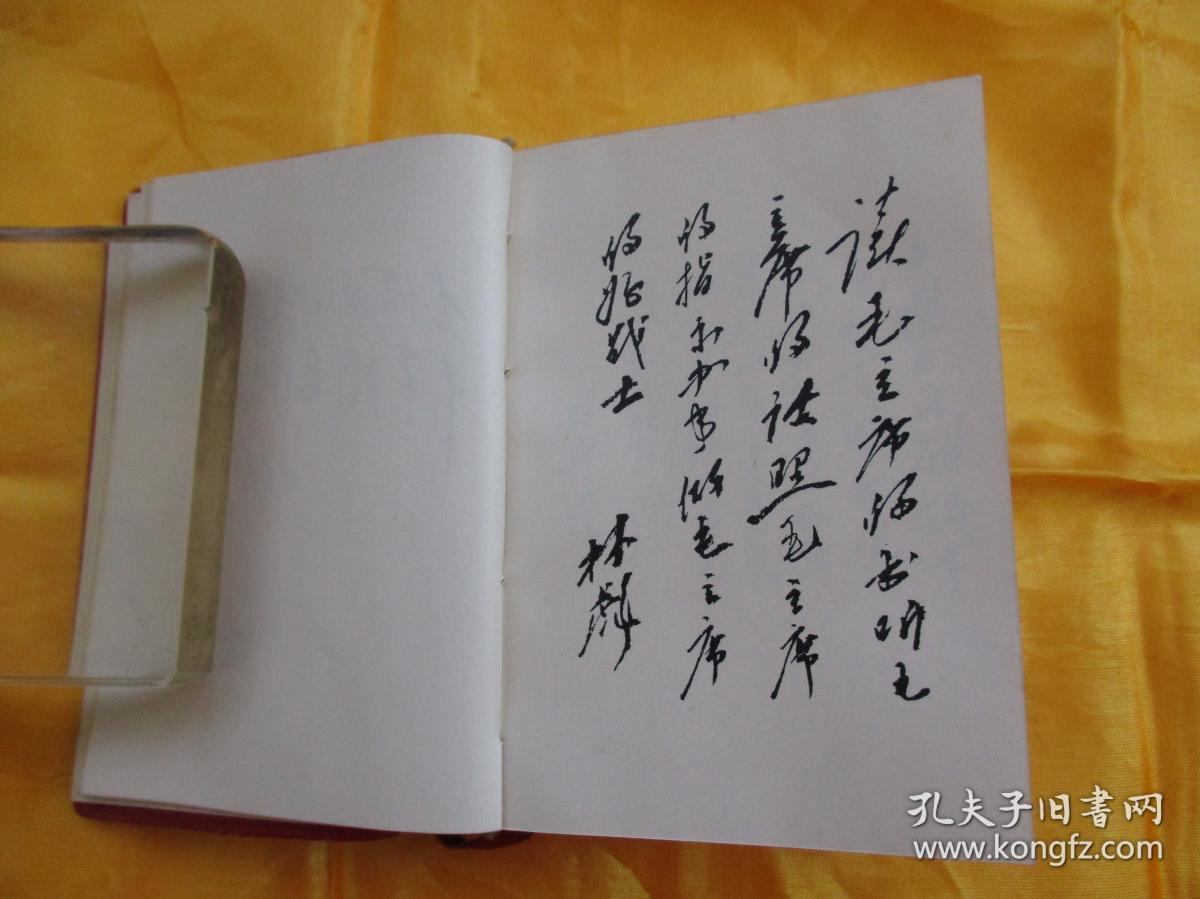 读毛主席的书听毛
主席的话照毛主席
的指示办事做毛主席
的好战士
林彪
孔夫子旧書网
www.kongfz.com